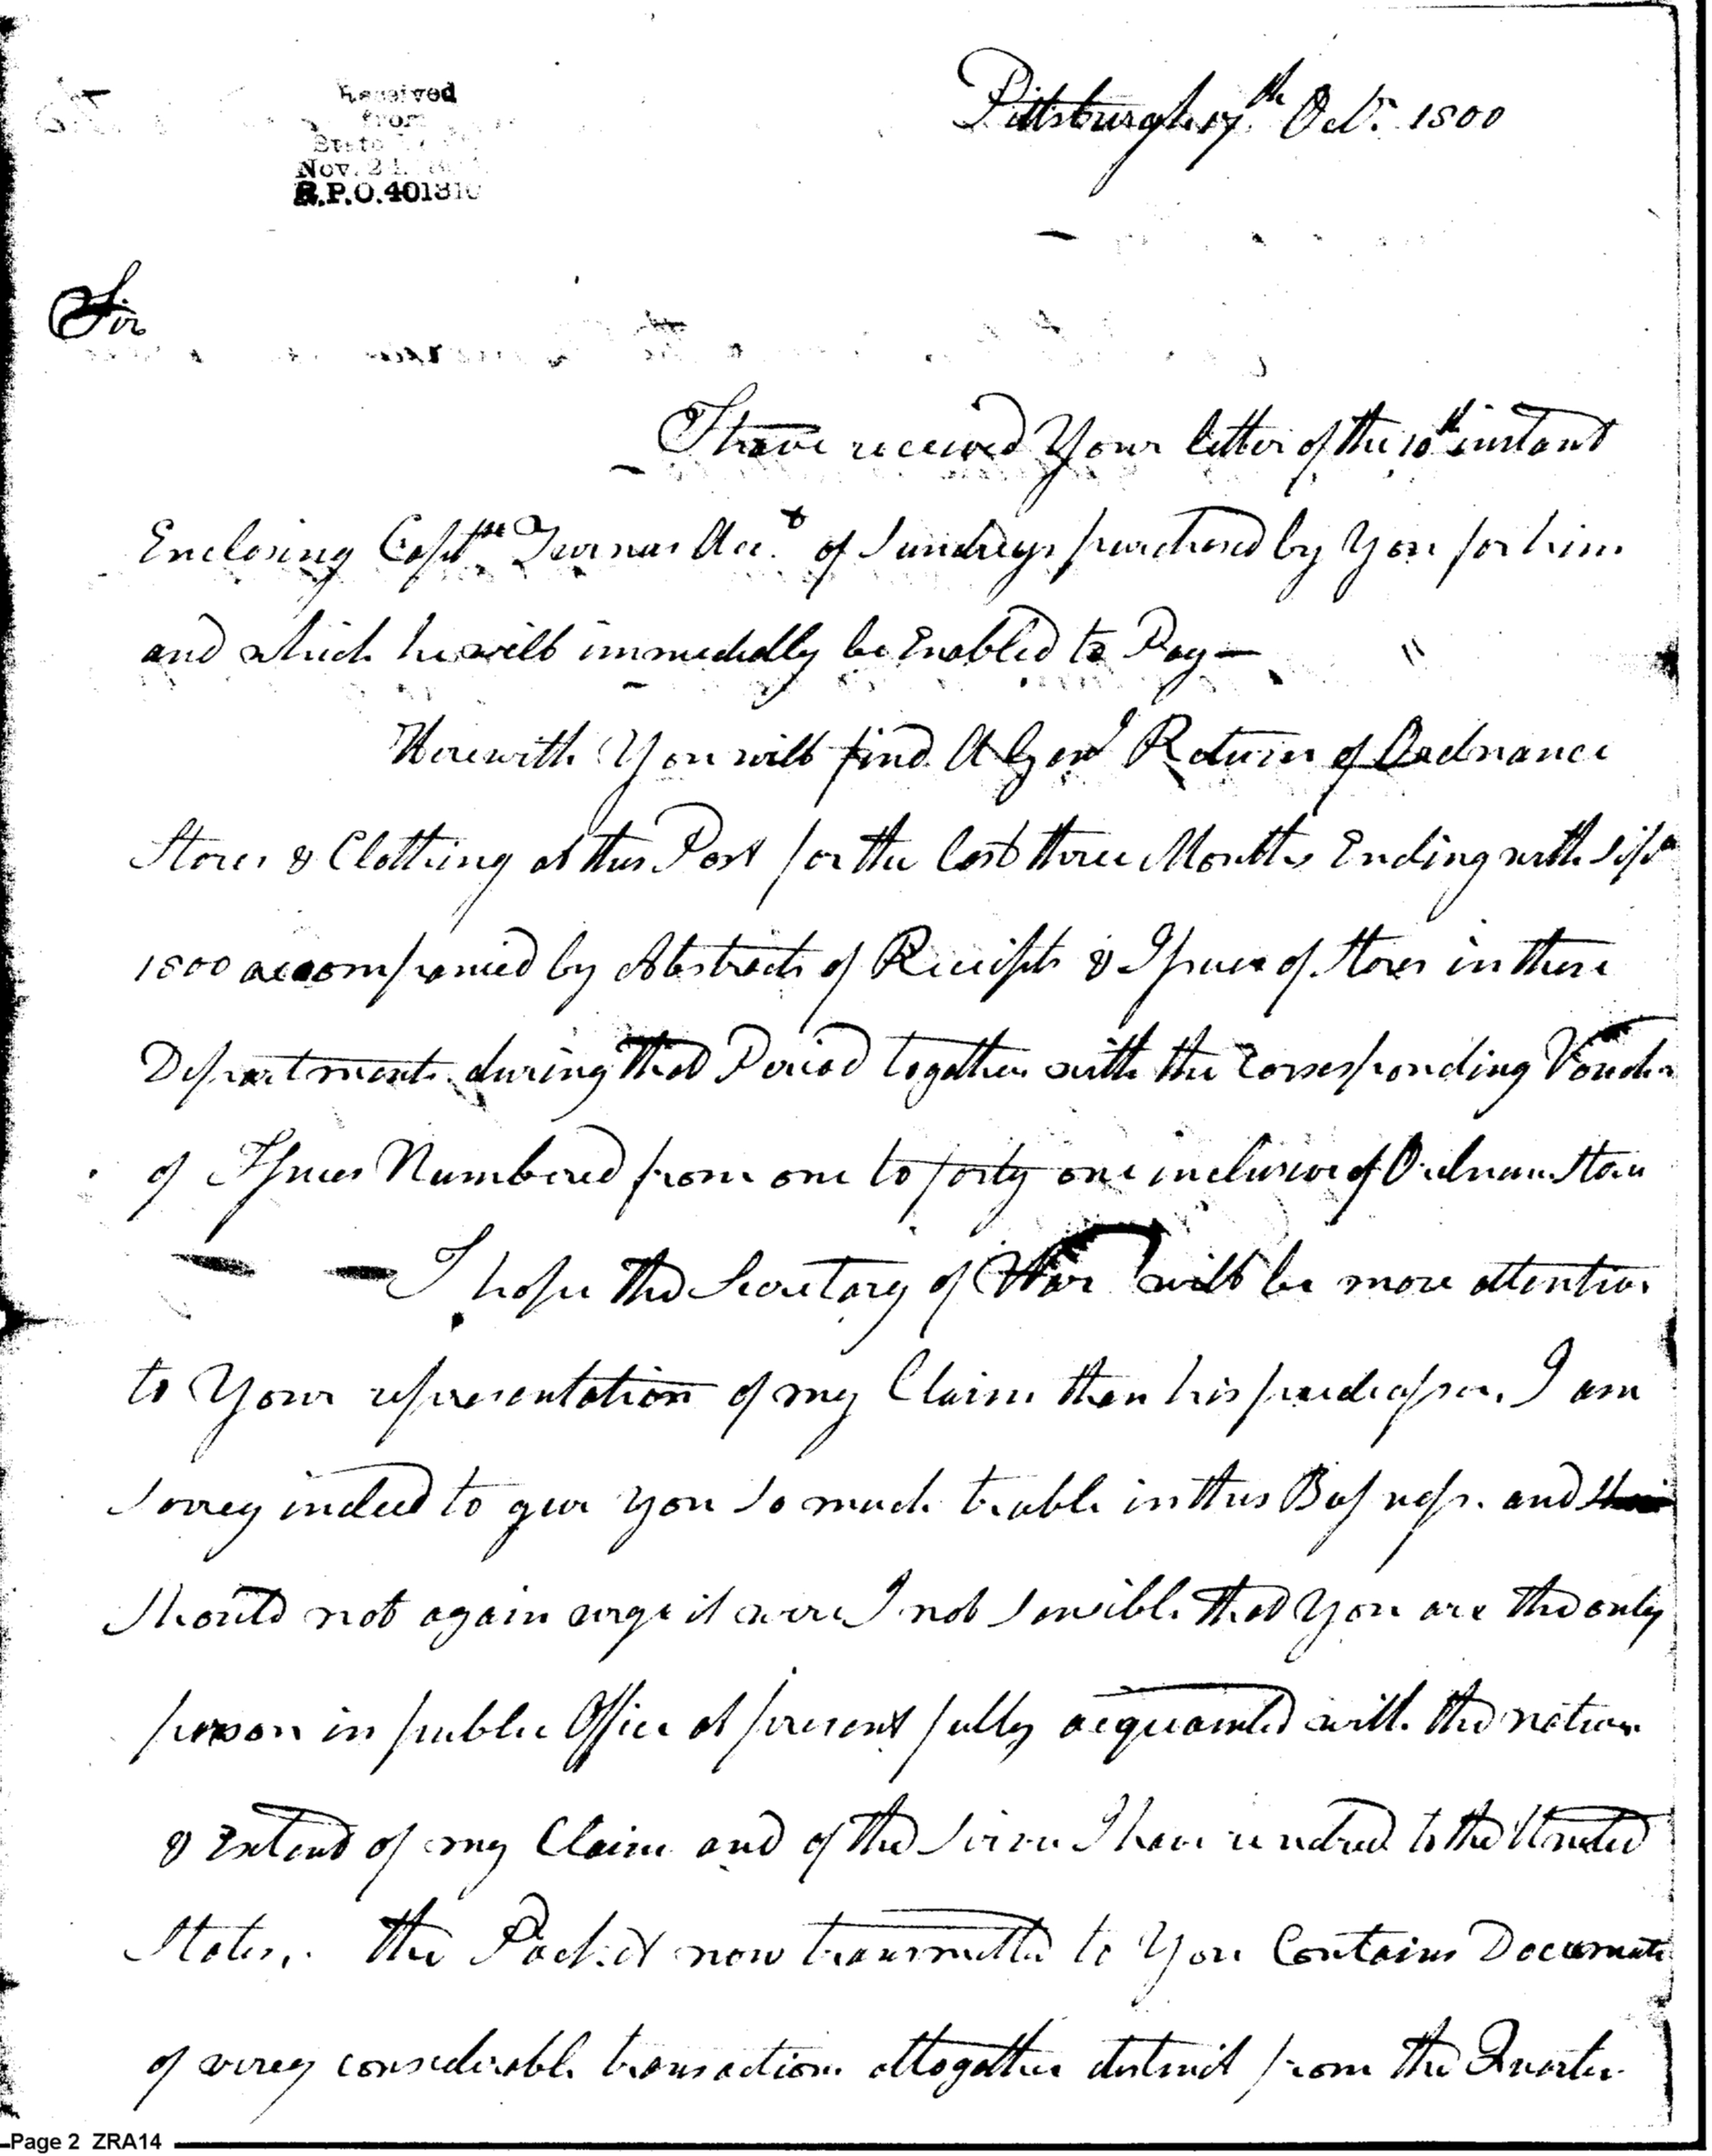 Received
from
State
Nov. 24.
R.P.O. 401310
Pittsburgh 17th Octr. 1800
Sir
I have received Your letter of the 10th instant
Enclosing Captn Acct of Sundreys purchased by You for him
and which he will immedially be Enabled to Pay—
Herewith You will find A Genl Return of Ordnance
Stores & Clothing at this Post for the last three Months Ending with Sepr
1800 accompanied by Abstracts of Receipts & Issues of Stores in these
Departments during that Period together with the Corresponding Vouchers
of Issues Numbered from one to forty one inclusive of Ordnance Stores
I hope the Secretary of War will be more attentive
to Your representation of my Claim than his predecessor. I am
sorrey indeed to give You so much trouble in this Business. and
should not again urge it were I not sensible that You are the only
person in public Office at present fully acquainted with the nature
& Extent of my Claim and of the Service I have rendred to the United
States. the Packet now transmitted to You Contains Documents
of verey considerable transactions altogather distinct from the Quarter
Page 2 ZRA14